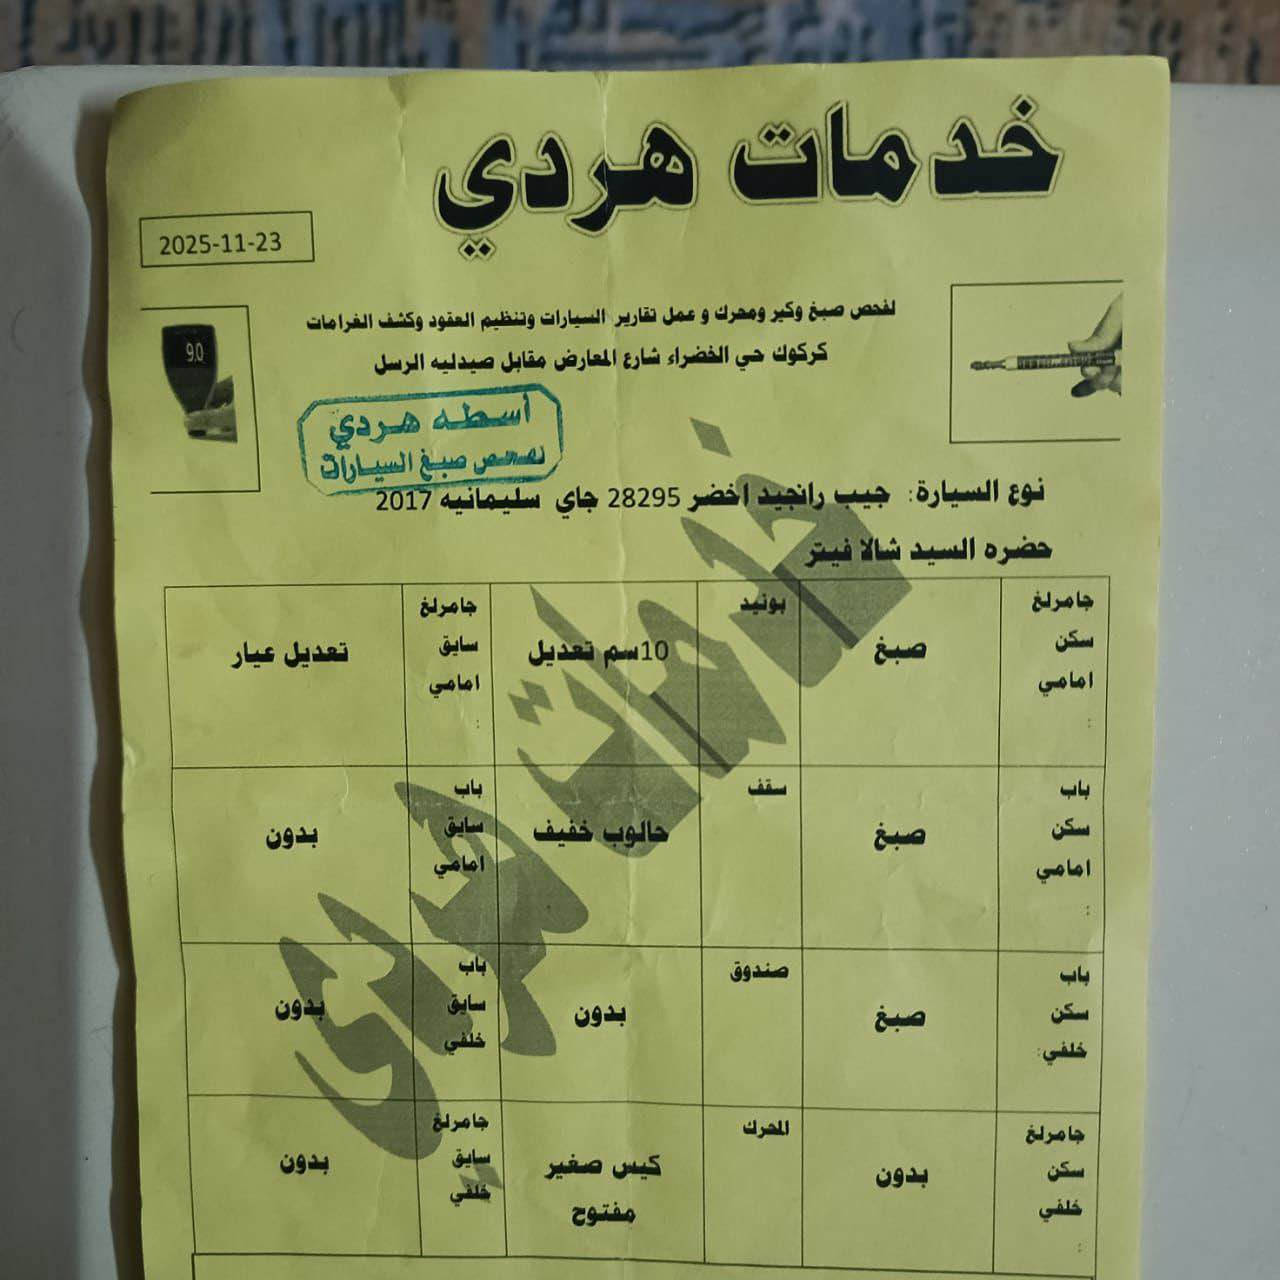 خدمات هردي
2025-11-23
لفحص صبغ وكير ومحرك و عمل تقارير السيارات وتنظيم العقود وكشف الغرامات
كركوك حي الخضراء شارع المعارض مقابل صيدليه الرسل
90
أسطه هردي
لفحص صبغ السيارات
نوع السيارة: جيب رانجيد اخضر 28295 جاي سليمانيه 2017
حضره السيد شالا فيتر
خدمات هردي
جامرلغ سكن امامي :
صبغ
بونيد
10سم تعديل
جامرلغ سايق امامي :
تعديل عيار
باب سكن امامي :
صبغ
سقف
حالوب خفيف
باب سايق امامي
بدون
باب سكن خلفي:
صبغ
صندوق
بدون
باب سايق خلفي
بدون
جامرلغ سكن خلفي :
بدون
المحرك
كيس صغير مفتوح
جامرلغ سايق خلفي
بدون